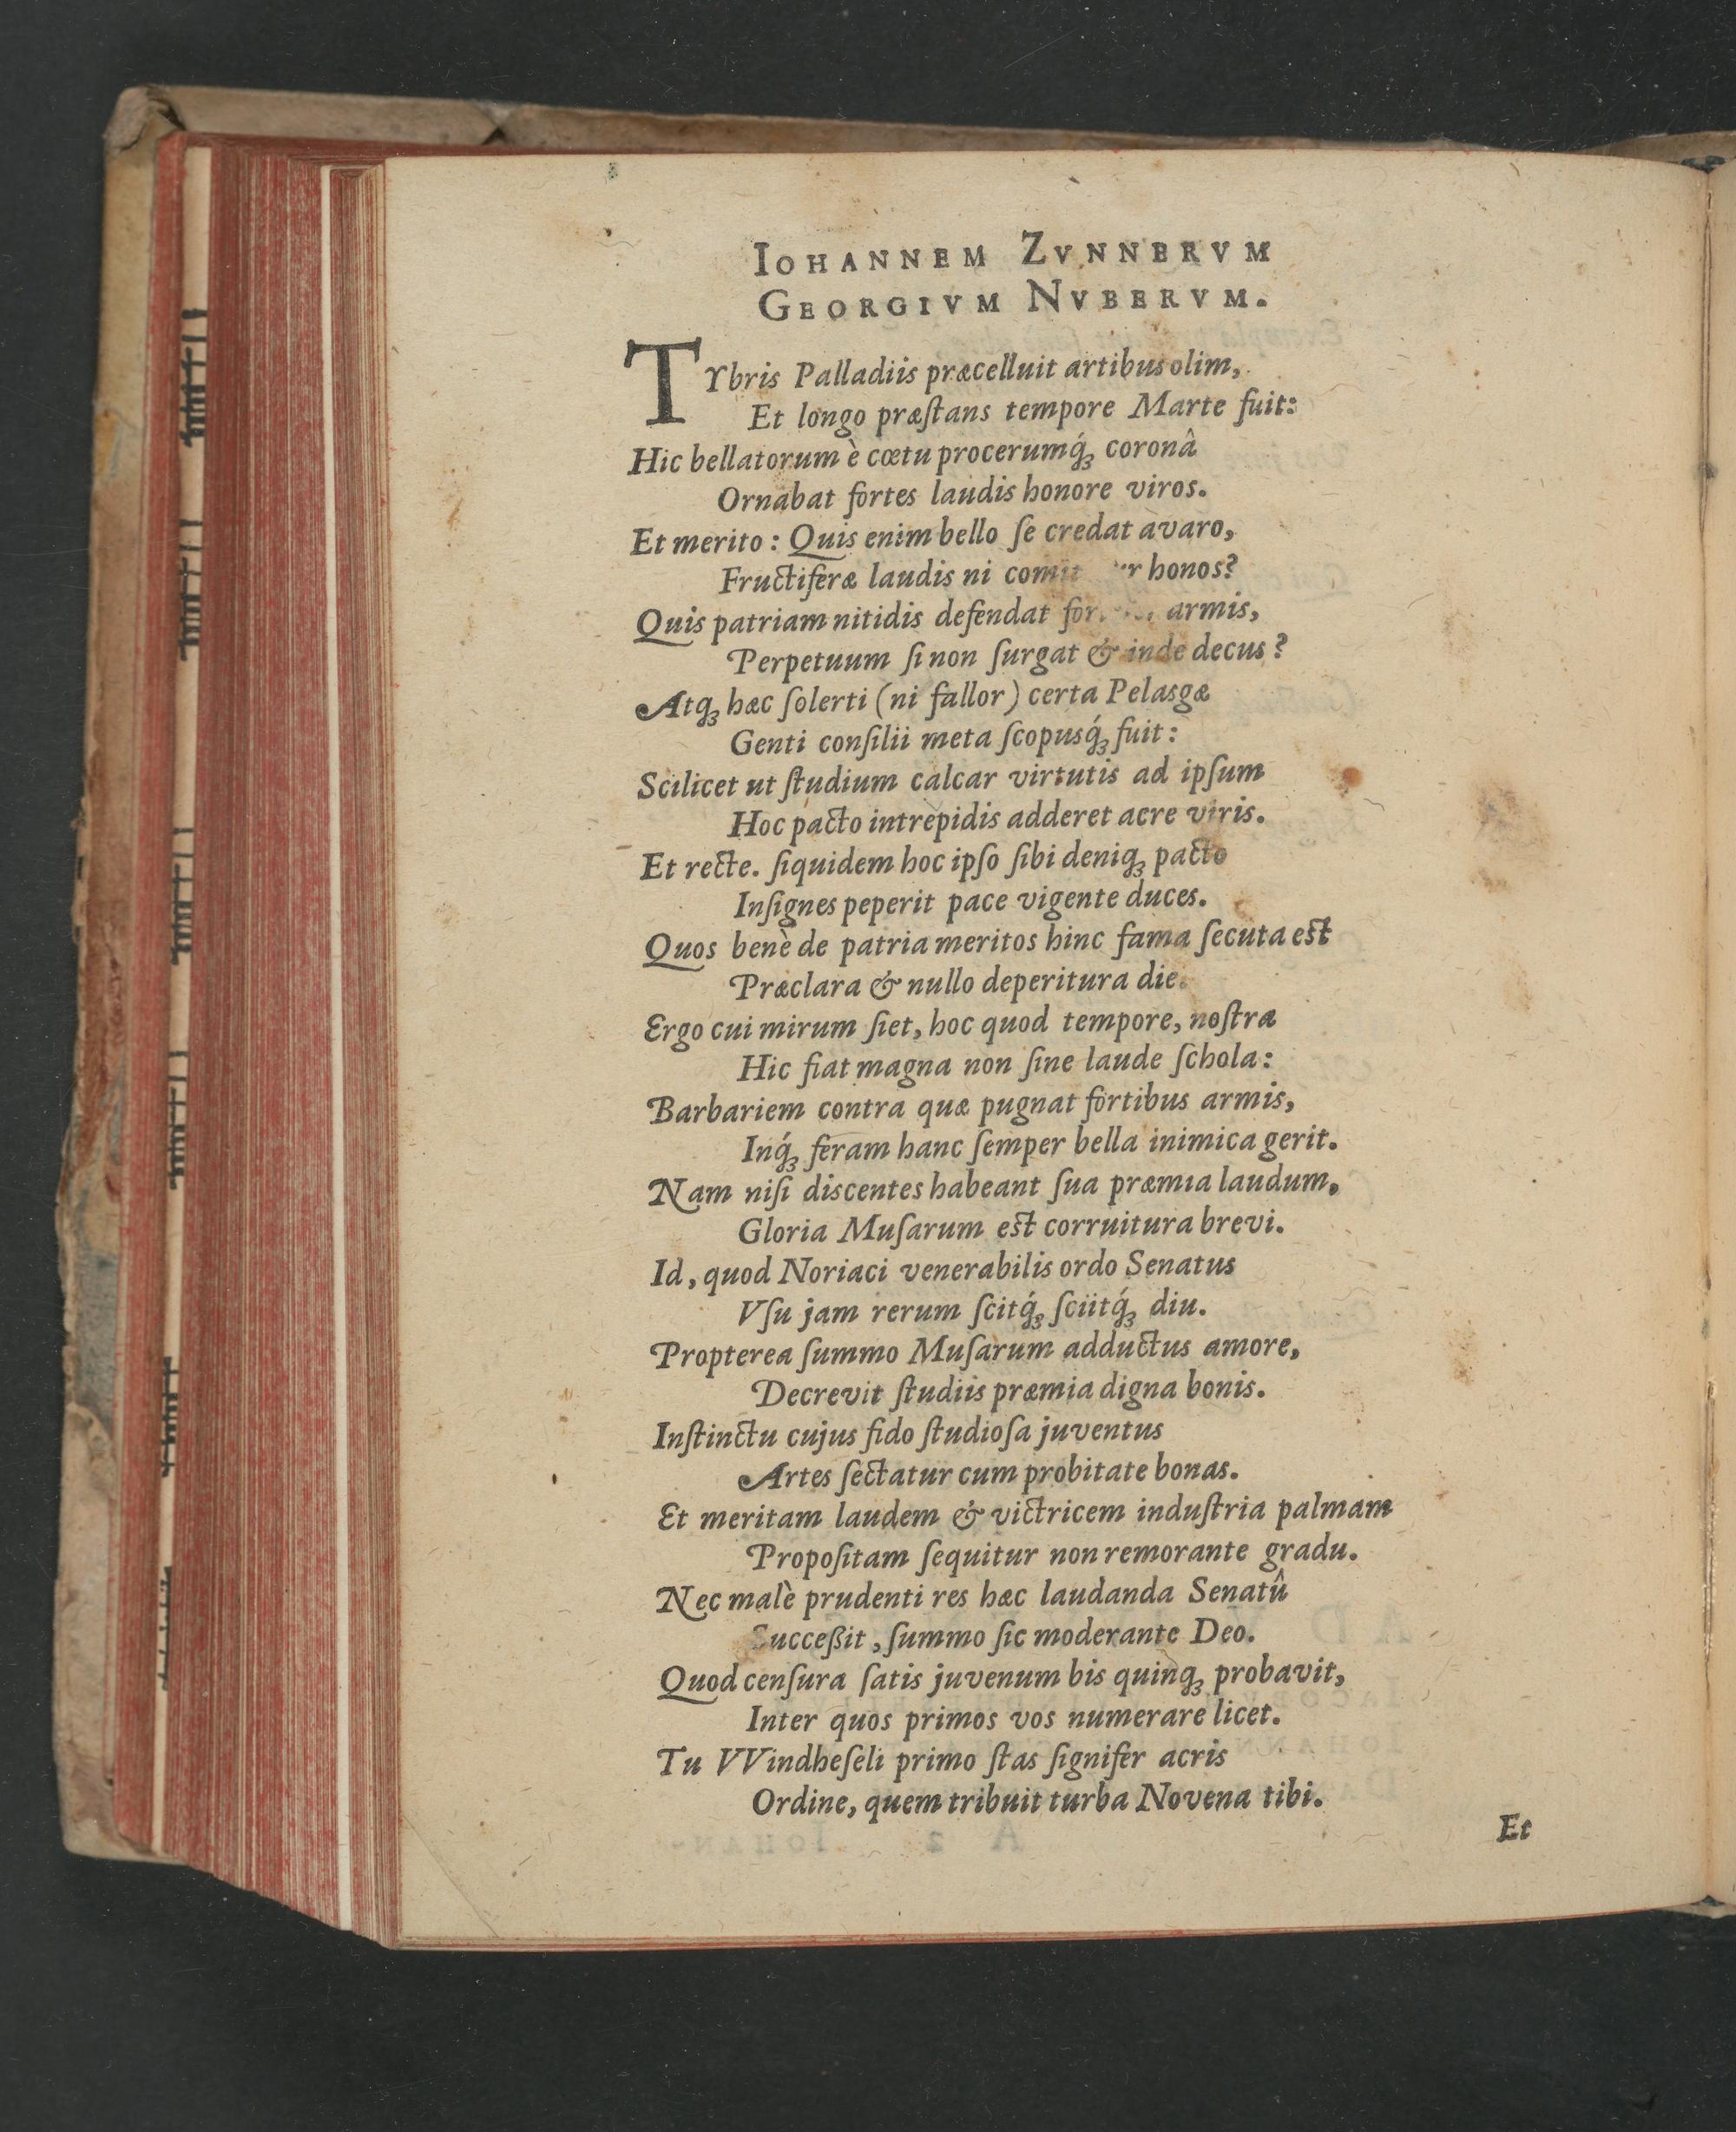 IOHANNEM ZVNNERVM
GEORGIVM NVBERVM.
TYbris Palladiis præcelluit artibus olim,
Et longo præſtans tempore Marte fuit:
Hic bellatorum è cœtu procerumq́ꝫ coronâ
Ornabat fortes laudis honore viros.
Et merito: Quis enim bello ſe credat avaro,
Fructiferæ laudis ni honos?
Quis patriam nitidis defendat armis,
Perpetuum ſi non ſurgat & inde decus?
Atqꝫ hæc ſolerti (ni fallor) certa Pelasgæ
Genti conſilii meta ſcopusq́ꝫ fuit:
Scilicet ut ſtudium calcar virtutis ad ipſum
Hoc pacto intrepidis adderet acre viris.
Et recte. ſiquidem hoc ipſo ſibi deniqꝫ pacto
Inſignes peperit pace vigente duces.
Quos benè de patria meritos hinc fama ſecuta eſt
Præclara & nullo deperitura die.
Ergo cui mirum ſiet, hoc quod tempore, noſtra
Hic fiat magna non ſine laude ſchola:
Barbariem contra quæ pugnat fortibus armis,
Inq́ꝫ feram hanc ſemper bella inimica gerit.
Nam niſi discentes habeant ſua præmia laudum,
Gloria Muſarum eſt corruitura brevi.
Id, quod Noriaci venerabilis ordo Senatus
Vſu jam rerum ſcitq́ꝫ ſciitq́ꝫ diu.
Propterea ſummo Muſarum adductus amore,
Decrevit ſtudiis præmia digna bonis.
Inſtinctu cujus fido ſtudioſa juventus
Artes ſectatur cum probitate bonas.
Et meritam laudem & victricem induſtria palmam
Propoſitam ſequitur non remorante gradu.
Nec malè prudenti res hæc laudanda Senatû
Succeßit, ſummo ſic moderante Deo.
Quod cenſura ſatis juvenum bis quinqꝫ probavit,
Inter quos primos vos numerare licet.
Tu VVindheſeli primo ſtas ſignifer acris
Ordine, quem tribuit turba Novena tibi.
Et